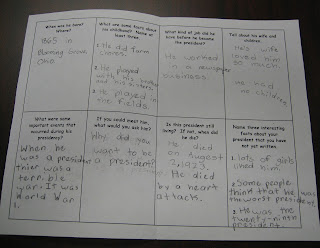 When was he born?
Where?
1865 in
Blooming Grove
Ohio
What are some facts about
his childhood? Name at
least three.
1. He did farm
chores.
2. He played
with his brother
and sisters.
3. He played in
the fields.
What kind of job did he
have before he became
the president?
He worked
in a newspaper
business.
Tell about his wife and
children.
He's wife
loved him
so much.
he had
no children
What were some
important events that
occurred during his
presidency?
When he
was a president
thier was a
terrible
war. It was
World War
1.
If you could meet him,
what would you ask him?
Why did you
want to be
a president?
Is this president still
living? If not, when did
he die?
He died
on August
2, 1923.
He died
by a heart
attack.
Name three interesting
facts about your
president that you have
not yet written.
1. lots of girls
liked him.
2. Some people
think that he was
the worst president.
3. He was the
twenty-ninth
president.